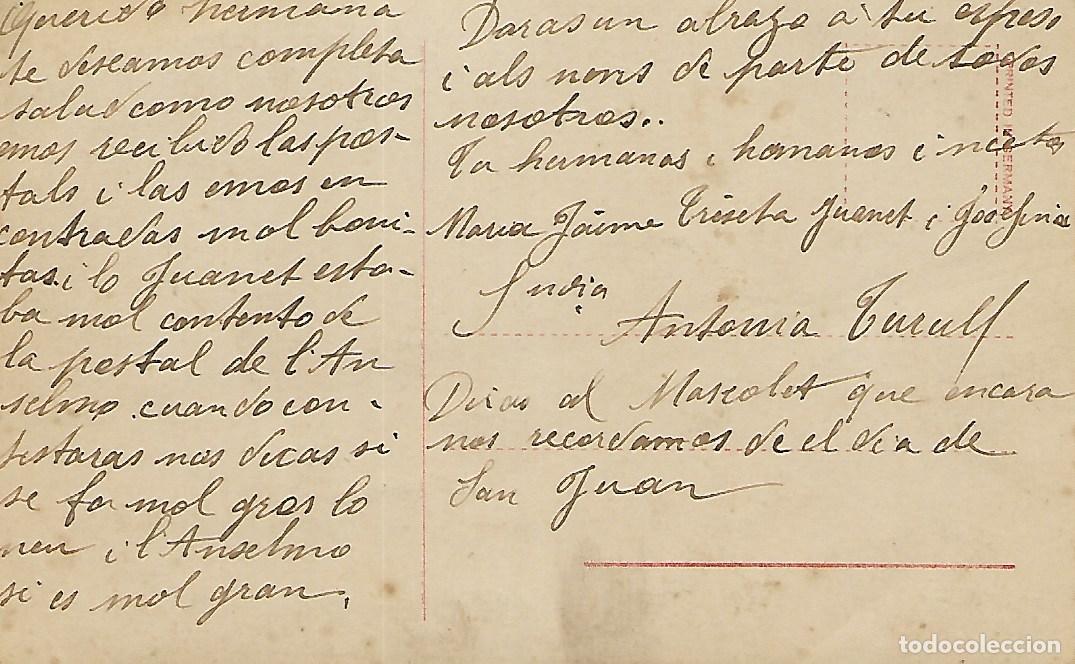 Querido hermana
te deseamos completa
salud como nosotros
emos recibido las pos-
tals i las emos en
contradas mol boni-
tas. i lo Juanet esta-
ba mol contento de
la postal de l'An
selmo. cuando con-
testaras nos dicas si
se fa mol gros lo
nen i l'Anselmo
si es mol gran.
Daras un abrazo a tu espeso
i als nens de parte de todos
nosotros..
Tu hermanos i hemanos i
Maria Jaime Treseta Juanet i Josefina
Antonia Turull
Diras al Mascolet que encara
nos recordamos de el dia de
San Juan
PRINTED IN GERMANY
todocoleccion